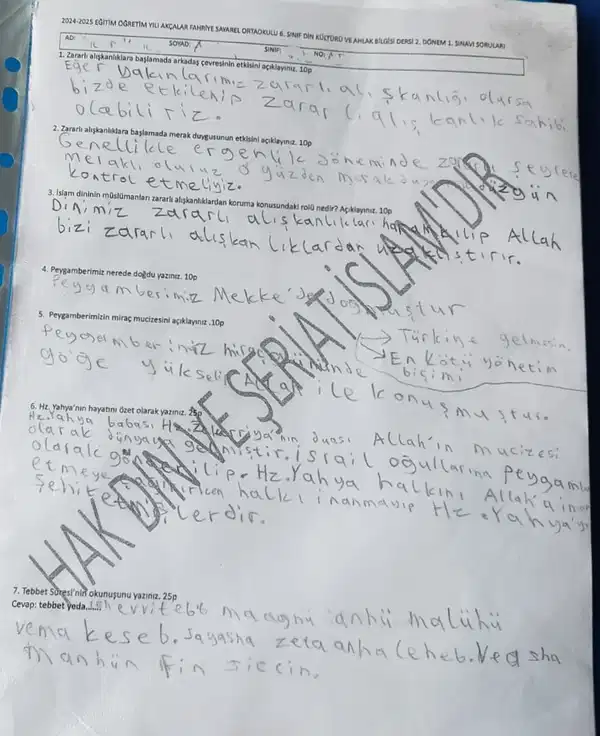 2024-2025 EĞİTİM ÖĞRETİM YILI AKÇALAR FAHRİYE SAVAREL ORTAOKULU 6. SINIF DİN KÜLTÜRÜ VE AHLAK BİLGİSİ DERSİ 2. DÖNEM 1. SINAVI SORULARI
AD: SOYAD: SINIF: NO:
1. Zararlı alışkanlıklara başlamada arkadaş çevresinin etkisini açıklayınız. 10p
Eğer yakınlarımız zararlı alışkanlığı olursa
bizde etkilenip zararlı alışkanlık sahibi
olabiliriz.
2. Zararlı alışkanlıklara başlamada merak duygusunun etkisini açıklayınız. 10p
Genellikle ergenlik döneminde zararlı şeylere
meraklı oluruz o yüzden düzgün
kontrol etmeliyiz.
3. İslam dininin müslümanları zararlı alışkanlıklardan koruma konusundaki rolü nedir? Açıklayınız. 10p
Dinimiz zararlı alışkanlıkları haram kılıp Allah
bizi zararlı alışkanlıklardan uzaklıştırır.
4. Peygamberimiz nerede doğdu yazınız. 10p
Peygamberimiz Mekke'de doğmuştur
5. Peygamberimizin miraç mucizesini açıklayınız .10p
Peygamberimiz miraç
göğe yükselip Allah ile konuşmuştur.
→ Türkiye gelmesin.
→ En kötü yönetim
biçimi
6. Hz. Yahya'nın hayatını özet olarak yazınız. 25p
Hz. Yahya babası Hz. Zekeriya'nın duası Allah'ın mucizesi
olarak dünyaya gelmiştir. İsrail oğullarına peygamber
olarak gönderilip. Hz. Yahya halkını Allah'a
etmeye halkı inanmayıp Hz. Yahya'yı
şehit etmişlerdir.
HAK DİN VE ŞERİAT İSLAM'DIR
7. Tebbet Suresi'nin okunuşunu yazınız. 25p
Cevap: tebbet yeda.....
maagni anhü malühü
vema keseb. Sayasna zeta anha leheb.